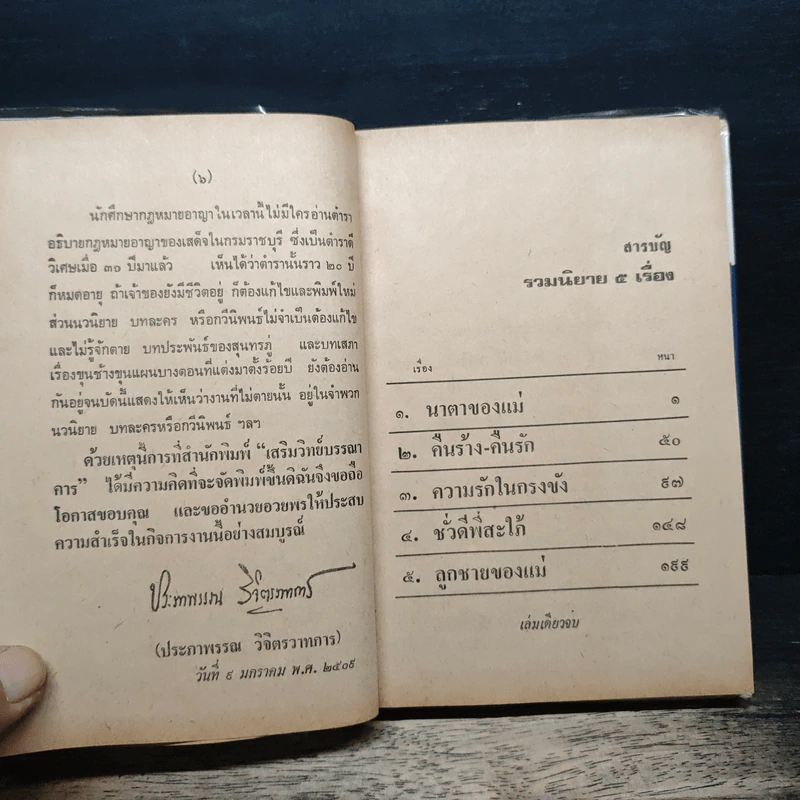 (๖)
นักศึกษากฎหมายอาญาในเวลานี้ไม่มีใครอ่านตำรา
อธิบายกฎหมายอาญาของเสด็จในกรมราชบุรี ซึ่งเป็นตำราดี
วิเศษเมื่อ ๓๐ ปีมาแล้ว เห็นได้ว่าตำรานั้นราว ๒๐ ปี
ก็หมดอายุ ถ้าเจ้าของยังมีชีวิตอยู่ ก็ต้องแก้ไขและพิมพ์ใหม่
ส่วนนวนิยาย บทละคร หรือกวีนิพนธ์ไม่จำเป็นต้องแก้ไข
และไม่รู้จักตาย บทประพันธ์ของสุนทรภู่ และบทเสภา
เรื่องขุนช้างขุนแผนบางตอนที่แต่งมาตั้งร้อยปี ยังต้องอ่าน
กันอยู่จนบัดนี้แสดงให้เห็นว่างานที่ไม่ตายนั้น อยู่ในจำพวก
นวนิยาย บทละครหรือกวีนิพนธ์ ฯลฯ
ด้วยเหตุนี้การที่สำนักพิมพ์ “เสริมวิทย์บรรณา
คาร” ได้มีความคิดที่จะจัดพิมพ์ขึ้นดิฉันจึงขอถือ
โอกาสขอบคุณ และขออำนวยอวยพรให้ประสบ
ความสำเร็จในกิจการงานนี้อย่างสมบูรณ์
ประภาพรรณ วิจิตรวาทการ
(ประภาพรรณ วิจิตรวาทการ)
วันที่ ๙ มกราคม พ.ศ. ๒๕๐๙
สารบัญ
รวมนิยาย ๕ เรื่อง
เรื่อง หน้า
๑. น้ำตาของแม่ ๑
๒. คืนร้าง-คืนรัก ๕๐
๓. ความรักในกรงขัง ๙๗
๔. ชั่วดีพี่สะใภ้ ๑๔๘
๕. ลูกชายของแม่ ๑๙๙
เล่มเดียวจบ